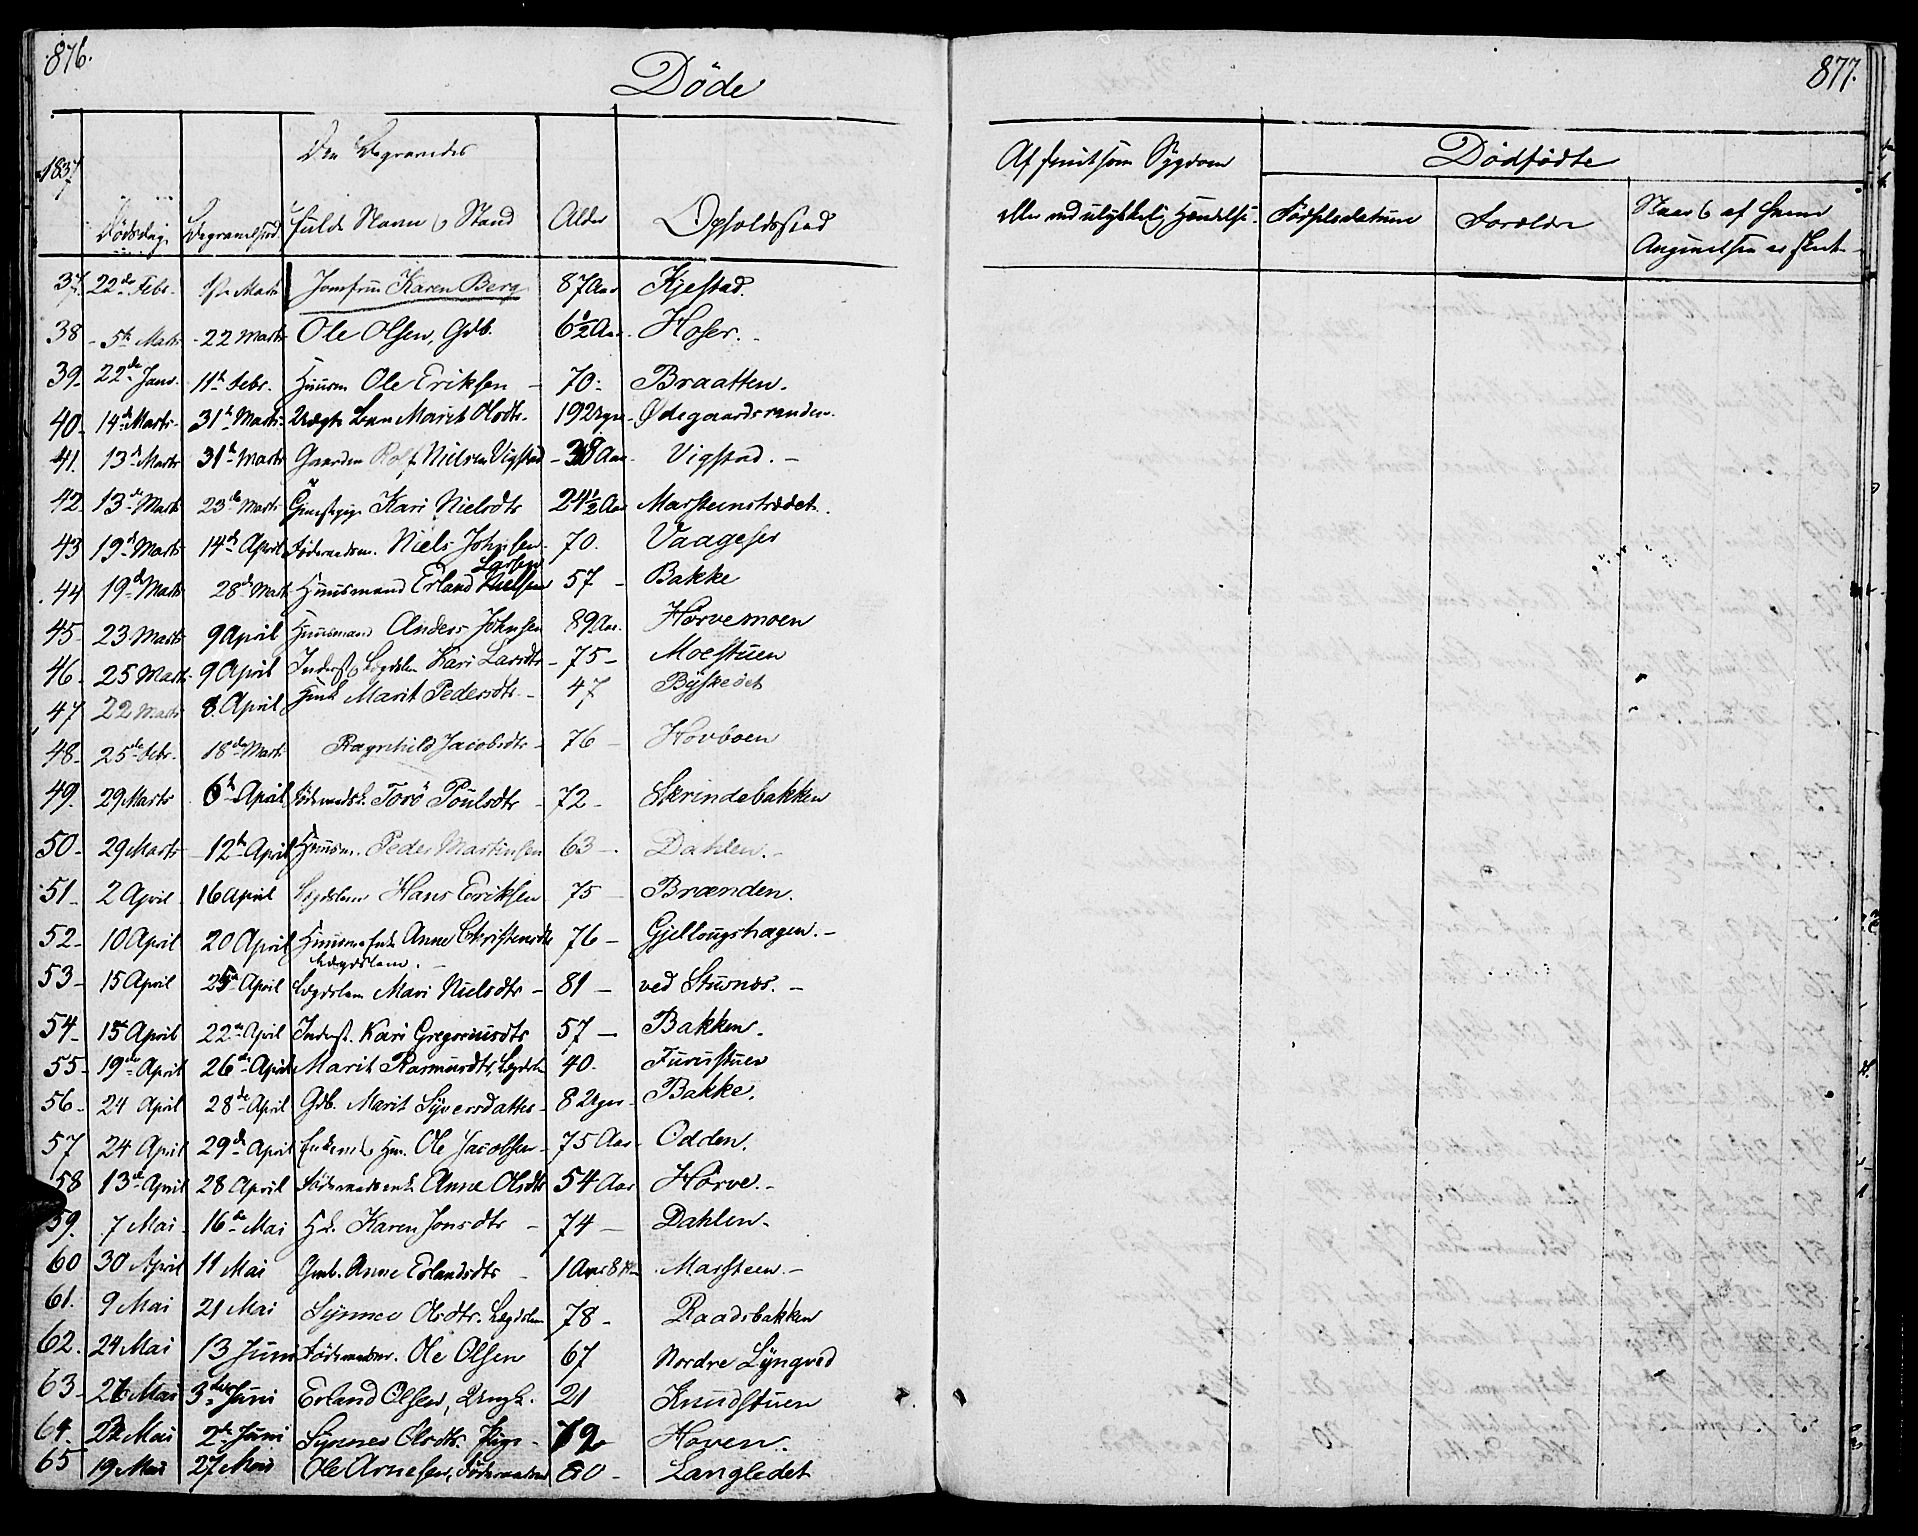 876.
Döde
1837
Den Begravedes
Dödsdag. Begravelsesd. fulde Navn & Stand Alder Opholdsstad
37. 22de Febr. Marts Jomfrue Karen Berg 87 Aar Kjestad.
38 - 5te Marts - 22 Marts Ole Olsen, Gdb. 6½ Aar. Hoser. -
39. 22de Janv. 11te Febr. Huusm Ole Eriksen - 70 - Braatten.
40 - 14de Marts - 31te Marts Marit Olsdtr. 19 Uger - Ödegaardsranden.
41. 13de Marts 31te Marts Gaardm Rolf Nielsen Vigstad - 38 Aar Vigstad. -
42 13de Marts 23de Marts Kari Nielsdtr 24½ Aar Marsteinstrædet.
43 19de Marts 14de April Föderaadsm. Niels Johnsen - 70. Vaageser
44 19de Marts 28de Mart Huusmand Erland Nielsen Larsen 57 - Bakke
45 - 23 Marts 9 April Huusmand Anders Johnsen 89 Aar. Hörvemoen
46 - 25 Marts - 9 April Inderst & Lægdslem Kari Larsdtr - 75 - Moestuen
47 22 Marts 8. April Marit Pedersdtr. - 47 Byskedet
48 - 25de Febr. 18de Marts Ragnhild Jacobsdtr - 76 - Hovboen
49. 29 Marts 6te April Torö Poulsdtr - 72 - Skrindebakken
50 - 29 Marts 12te April Huusm. Peder Martinsen 63 -. Dahlen. -
51 - 2 April - 16 April Lægdslem Hans Eriksen 75 - Brænden.
52 - 10 April 20 April Huusmands Enke Anne Christensdtr 76 - Gjellougshagen. -
Lægdslem. -
53 - 15 April 25de April Lægdslem Mari Nielsdtr - 81 - ved Stuenæs. -
54 - 15 April 22de April Inderst. Kari Gregoriusdtr 57 - Bakken.
55 - 19de April 26de April Marit Rasmusdtr, Lægdslem 40. Furustuen
56 - 24 April 28de April Gdb. Marit Syversdatter - 8 Uger - Bakke.
57 24 April 29de April Enkem. & Hm. Ole Jacobsen - 75 Aar - Odden.
58 13de April 28 April Anne Olsdtr 54 Aar Hörve. -
59. 7 Mai - 16de Mai Karen Jonsdtr - 74 - Dahlen -
60 30 April 11 Mai Anne Erlandsdtr - 1 Aar 8 Marsteen -
61. 9 Mai 21 Mai Synnev Olsdtr. Lægdslem 78 - Raadsbakken
62. 24 Mai 13 Juni Föderaadsm. Ole Olsen 67 Nordre Lyngved
63 - 26 Mai 3de Juni Erland Olsen, Ungk. 21 Knudstuen
64. 22 Mai 2de Juni Synnev Olsdtr. Pige - 72 Hoven.
65 19 Mai 27 Mai Ole Arnesen, Föderaadsm 80 - Langledet
877.
Af hvilken Sygdom
eller ved ulykkelig Hændelse.
Dödfödte
Födselsdatum Forældre
Naar & af hvem
Angivelsen er skeet -